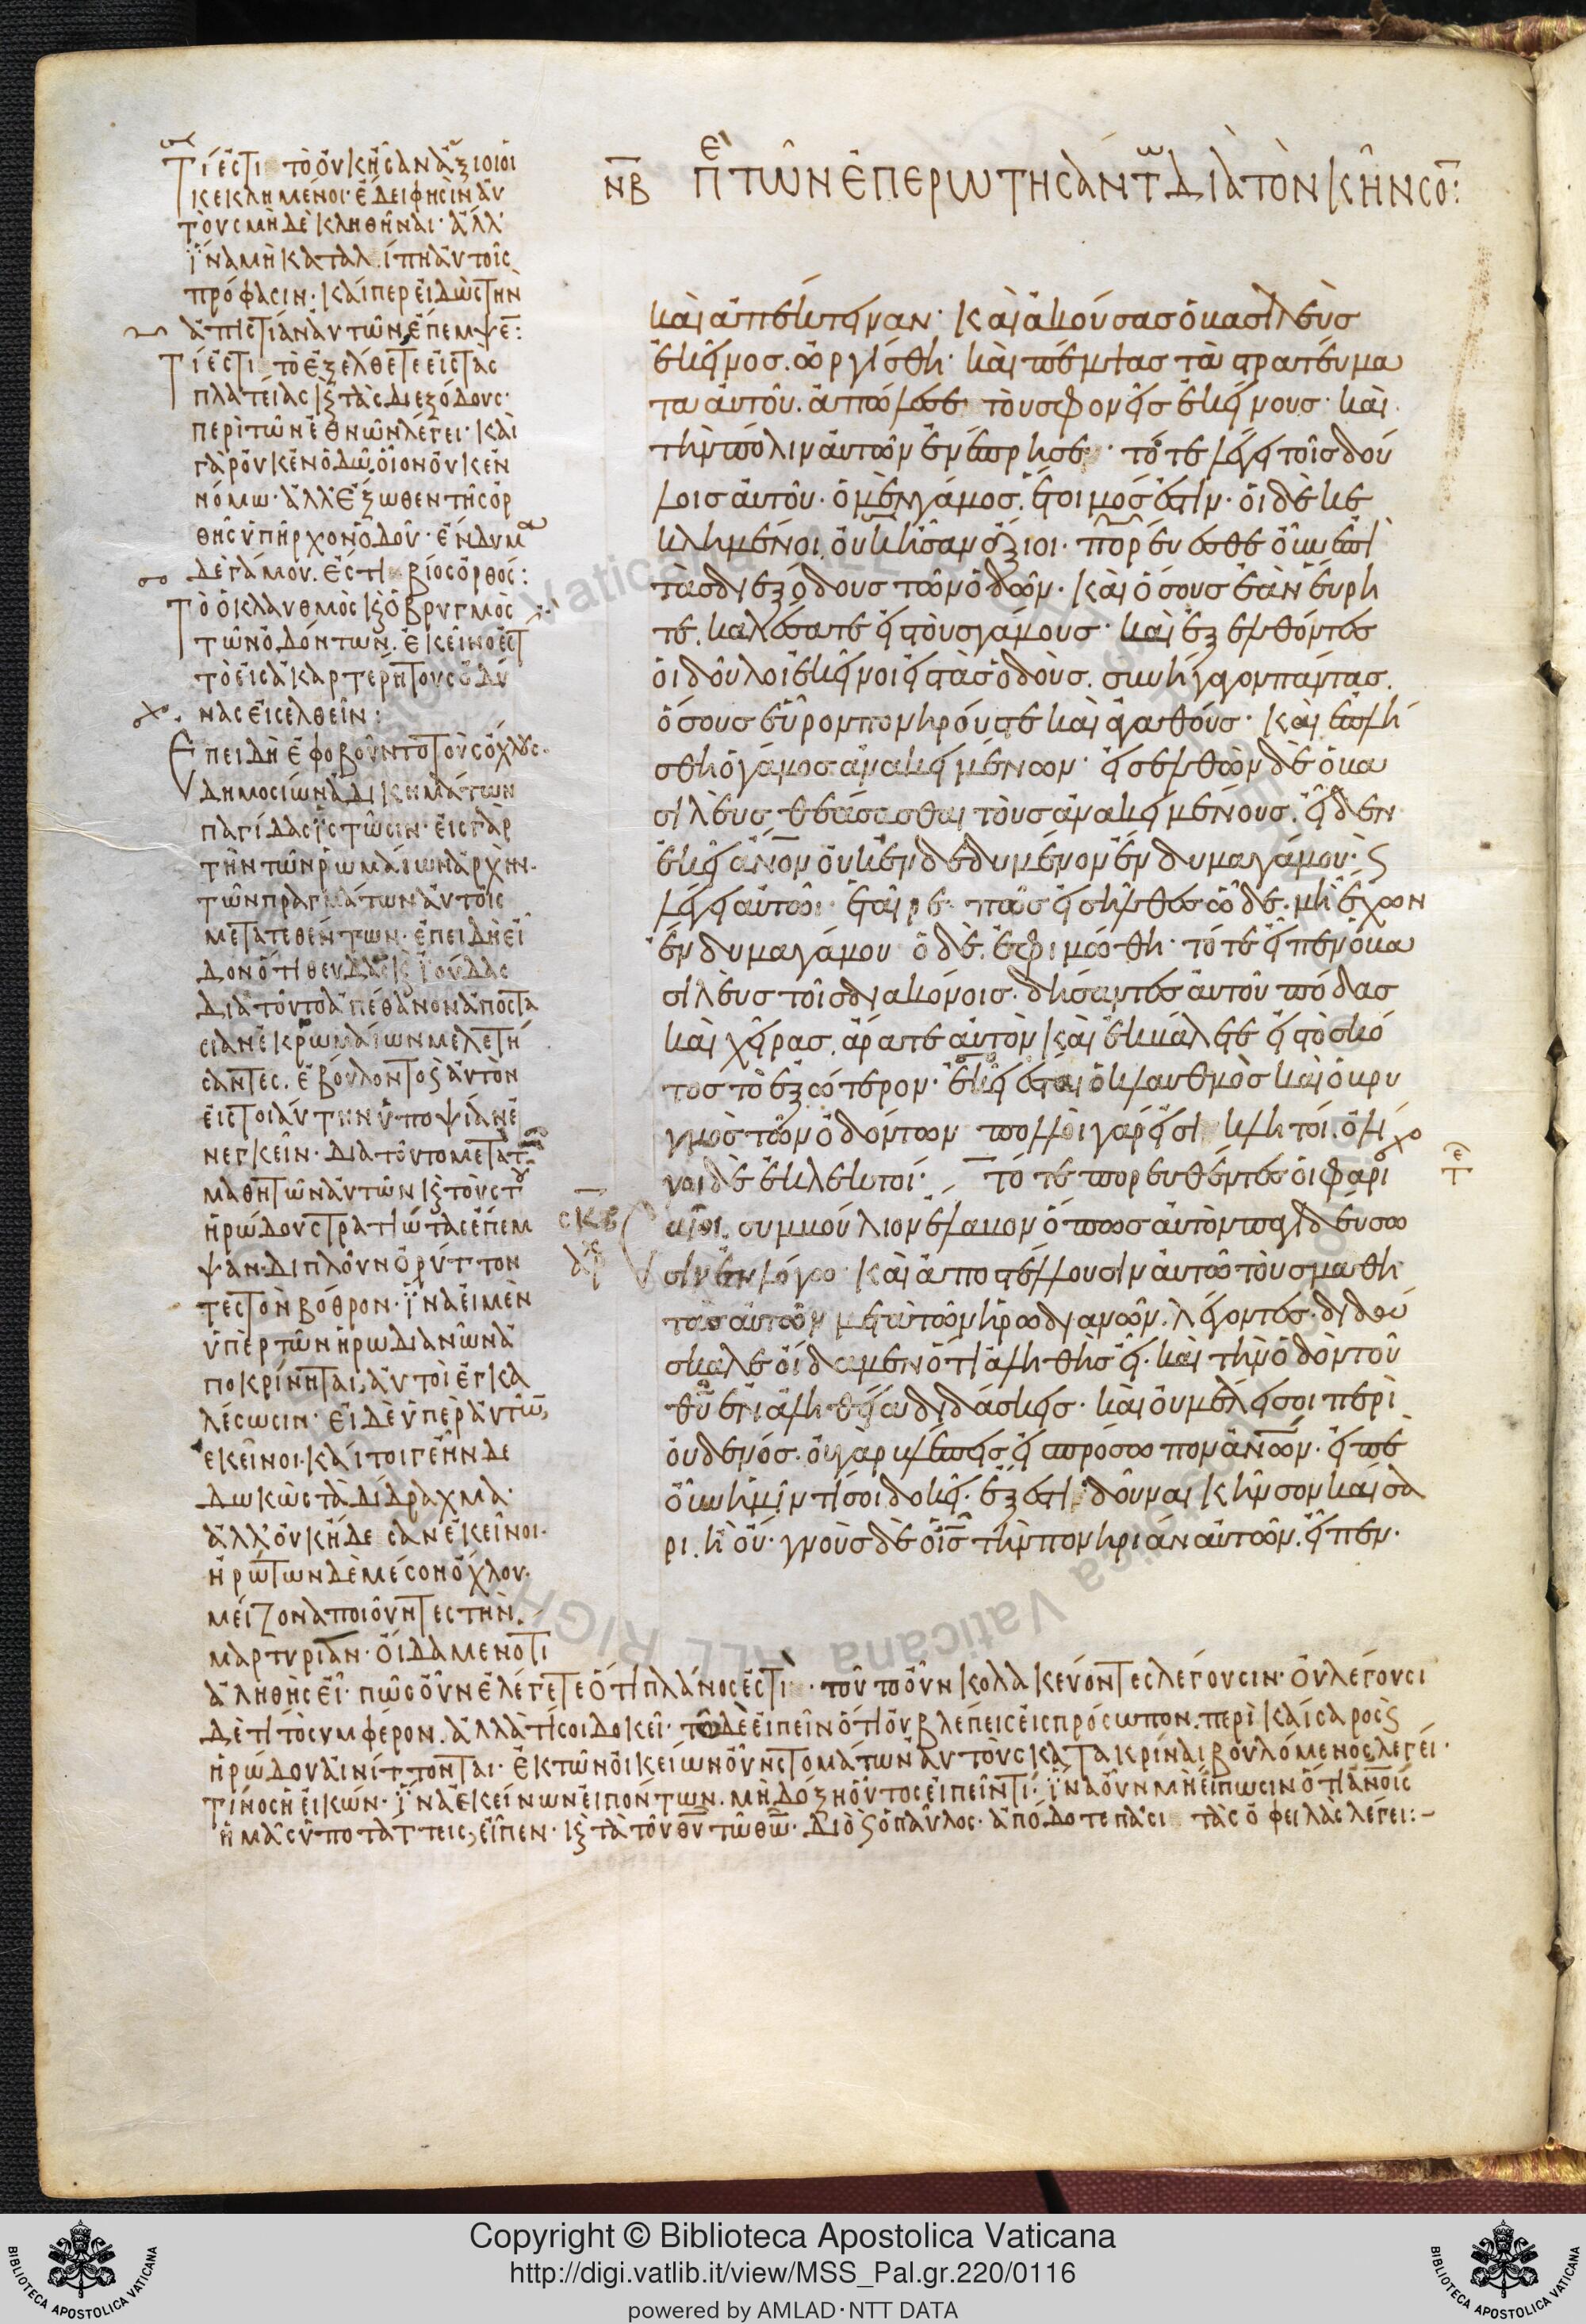 νβ πε τῶν ἐπερωτησάντων διὰ τὸν κῆνσο:
Τί ἐστι τὸ οὐκ ἦσαν ἄξιοι οἱ
κεκλημένοι· ἔδει φησὶν αὐ
τοὺς μηδὲ κληθῆναι· ἀλλ'
ἵνα μὴ καταλίπη αὐτοῖς
πρόφασιν· καίπερ εἰδὼς τὴν
ἀπιστίαν αὐτῶν, ἔπεμψε:
Τί ἐστι τὸ ἐξέλθετε εἰς τὰς
πλατείας κ τὰς διεξόδους·
περὶ τῶν ἐθνῶν λέγει· καὶ
γὰρ οὐκ ἐν ὁδῶ, οἷον οὐκ ἐν
νόμω· ἀλλ' ἔξωθεν τῆς ὀρ
θῆς ὑπῆρχον ὁδοῦ· ἔνδυμα
δὲ γάμου. ἐστὶ βίος ὀρθός:
Τὸ ὁ κλαυθμὸς κ ὁ βρυγμὸς
τῶν ὀδόντων. ἐκεῖνο ἐστ
τὸ εἰς ἀκαρτερήτους ὀδύ
νας εἰσελθεῖν:
Ἐπειδὴ ἐφοβοῦντο τοὺς ὄχλους·
δημοσίων ἀδικημάτων
παγίδας ἱστῶσιν· εἰς γὰρ
τὴν τῶν ῥωμαίων ἀρχὴν·
τῶν πραγμάτων αὐτοῖς
μετατεθέντων· ἐπειδὴ εἶ
δον ὅτι θευδᾶς κ ἰούδας
διὰ τοῦτο ἀπέθανον ἀποστα
σίαν ἐκ ῥωμαίων μελετή
σαντες. ἐβούλοντο κ αὐτὸν
εἰς τοιαύτην ὑποψίαν ἐ
νεγκεῖν· διατοῦτο μετὰ τῶν
μαθητῶν αὐτῶν κ τοὺς τοῦ
ἡρώδου στρατιώτας ἔπεμ
ψαν· διπλοῦν ὀρύττον
τες τὸν βόθρον· ἵνα εἰ μὲν
ὑπὲρ τῶν ἡρωδιανῶν ἀ
ποκρίνηται, αὐτοὶ ἐγκα
λέσωσιν· εἰ δὲ ὑπὲρ αὐτῶν,
ἐκεῖνοι· καίτοιγε ἦν δε
δωκὼς τὰ δίδραχμα·
ἀλλ' οὐκ ἤδεσαν ἐκεῖνοι·
ἠρώτων δὲ μέσον ὄχλου·
μείζονα ποιοῦντες τὴν
μαρτυρίαν· οἴδαμεν ὅτι
ἀληθὴς εἶ· πῶς οὖν ἐλέγετε ὅτι πλάνος ἐστὶ· τοῦτο οὖν κολακεύοντες λέγουσιν· οὐ λέγουσι
δὲ τί τὸ συμφέρον. ἀλλὰ τί σοι δοκεῖ· τὸ δὲ εἰπεῖν ὅτι οὐ βλέπεις εἰς πρόσωπον. περὶ καίσαρος κ
ἡρώδου αἰνίττονται· ἐκ τῶν οἰκείων οὖν στομάτων αὐτοὺς κατακρίναι βουλόμενος, λέγει·
τίνος ἡ εἰκών· ἵνα ἐκείνων εἰπόντων. μὴ δόξη οὗτος εἰπεῖν τί· ἵνα οὖν μὴ εἴπωσιν ὅτι ἀνοις
ἡμᾶς ὑποτάττεις, εἶπεν· κ τὰ τοῦ θυ τῶ θω· διὸ κ ὁ παῦλος· ἀπόδοτε πᾶσι τὰς ὀφειλὰς λέγει:–
καὶ ἀπέκτειναν· καὶ ἀκούσας ὁ βασιλεὺς
ἐκεῖνος. ὠργίσθη· καὶ πέμψας τὰ στρατεύμα
τα αὐτοῦ. ἀπώλεσε τοὺς φονεῖς ἐκείνους· καὶ
τὴν πόλιν αὐτῶν ἐνέπρησε· τότε λέγει τοῖς δού
λοις αὐτοῦ· ὁ μὲν γάμος. ἕτοιμός ἐστιν· οἱ δὲ κε
κλημένοι, οὐκ ἦσαν ἄξιοι· πορεύεσθε οὖν ἐπὶ
τὰς διεξόδους τῶν ὁδῶν· καὶ ὅσους ἐὰν εὕρη
τε. καλέσατε εἰς τοὺς γάμους· καὶ ἐξελθόντες
οἱ δοῦλοι ἐκεῖνοι εἰς τὰς ὁδοὺς. συνήγαγον πάντας.
ὅσους εὗρον πονηρούς τε καὶ ἀγαθούς· καὶ ἐπλή
σθη ὁ γάμος ἀνακειμένων· εἰσελθὼν δὲ ὁ βα
σιλεὺς θεάσασθαι τοὺς ἀνακειμένους. εἶδεν
ἐκεῖ ἄνον οὐκ ἐνδεδυμένον ἔνδυμα γάμου· κ
λέγει αὐτῶ· ἑταῖρε· πῶς εἰσῆλθες ὧδε· μὴ ἔχων
ἔνδυμα γάμου· ὁ δὲ. ἐφιμώθη· τότε εἶπεν ὁ βα
σιλεὺς τοῖς διακόνοις· δήσαντες αὐτοῦ πόδας
καὶ χεῖρας, ἄρατε αὐτὸν καὶ ἐκβάλετε εἰς τὸ σκό
τος τὸ ἐξώτερον· ἐκεῖ ἔσται ὁ κλαυθμὸς καὶ ὁ βρυ
γμὸς τῶν ὀδόντων· πολλοὶ γάρ εἰσι κλητοί. ὀλί
γοι δὲ ἐκλεκτοί· τότε πορευθέντες οἱ φαρι
σκβ σαῖοι. συμβούλιον ἔλαβον ὅπως αὐτὸν παγιδεύσω
αρχ σιν ἐν λόγω· καὶ ἀποστέλλουσιν αὐτῶ τοὺς μαθη
τὰς αὐτῶν μετὰ τῶν ἡρωδιανῶν, λέγοντες· διδά
σκαλε οἴδαμεν ὅτι ἀληθὴς εἶ. καὶ τὴν ὁδὸν τοῦ
θυ ἐν ἀληθεία διδάσκεις· καὶ οὐ μέλει σοι περὶ
οὐδενός. οὐ γὰρ βλέπεις εἰς πρόσωπον ἀνων· εἰπὲ
οὖν ἡμῖν τί σοι δοκεῖ· ἔξεστι δοῦναι κῆνσον καίσα
ρι. ἢ οὔ· γνοὺς δὲ ὁ ις τὴν πονηρίαν αὐτῶν, εἶπεν·
Copyright © Biblioteca Apostolica Vaticana
http://digi.vatlib.it/view/MSS_Pal.gr.220/0116
powered by AMLAD·NTT DATA
BIBLIOTECA APOSTOLICA VATICANA
BIBLIOTECA APOSTOLICA VATICANA